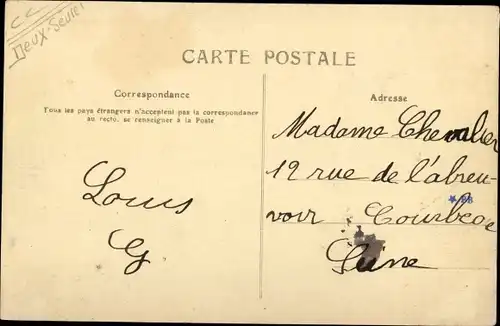 CC
Deux-Sèvres
CARTE POSTALE
Correspondance
Tous les pays étrangers n'acceptent pas la correspondance
au recto, se renseigner à la Poste
Louis
G
Adresse
Madame Chevalier
12 rue de l'abreu-
voir Courbevoie
Seine